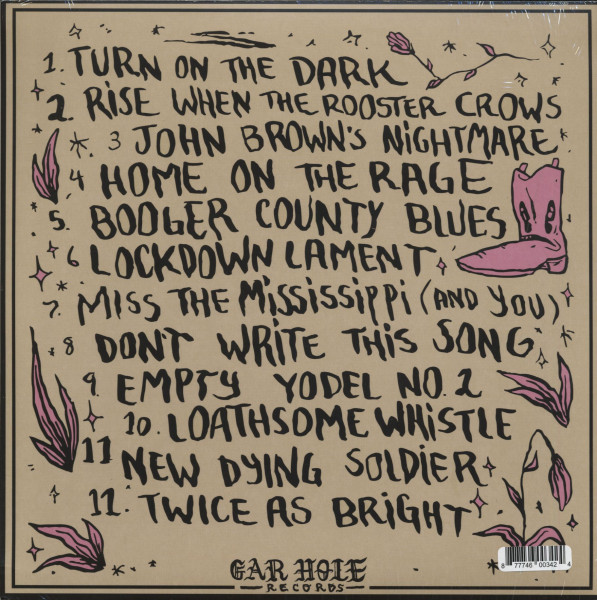 1. TURN ON THE DARK
2. RISE WHEN THE ROOSTER CROWS
3 JOHN BROWN'S NIGHTMARE
4 HOME ON THE RAGE
5. BOOGER COUNTY BLUES
6 LOCKDOWN LAMENT
7. MISS THE MISSISSIPPI (AND YOU)
8 DON'T WRITE THIS SONG
9. EMPTY YODEL NO. 2
10. LOATHSOME WHISTLE
11 NEW DYING SOLDIER
12. TWICE AS BRIGHT
GAR HOLE
RECORDS
8 77746 00342 4